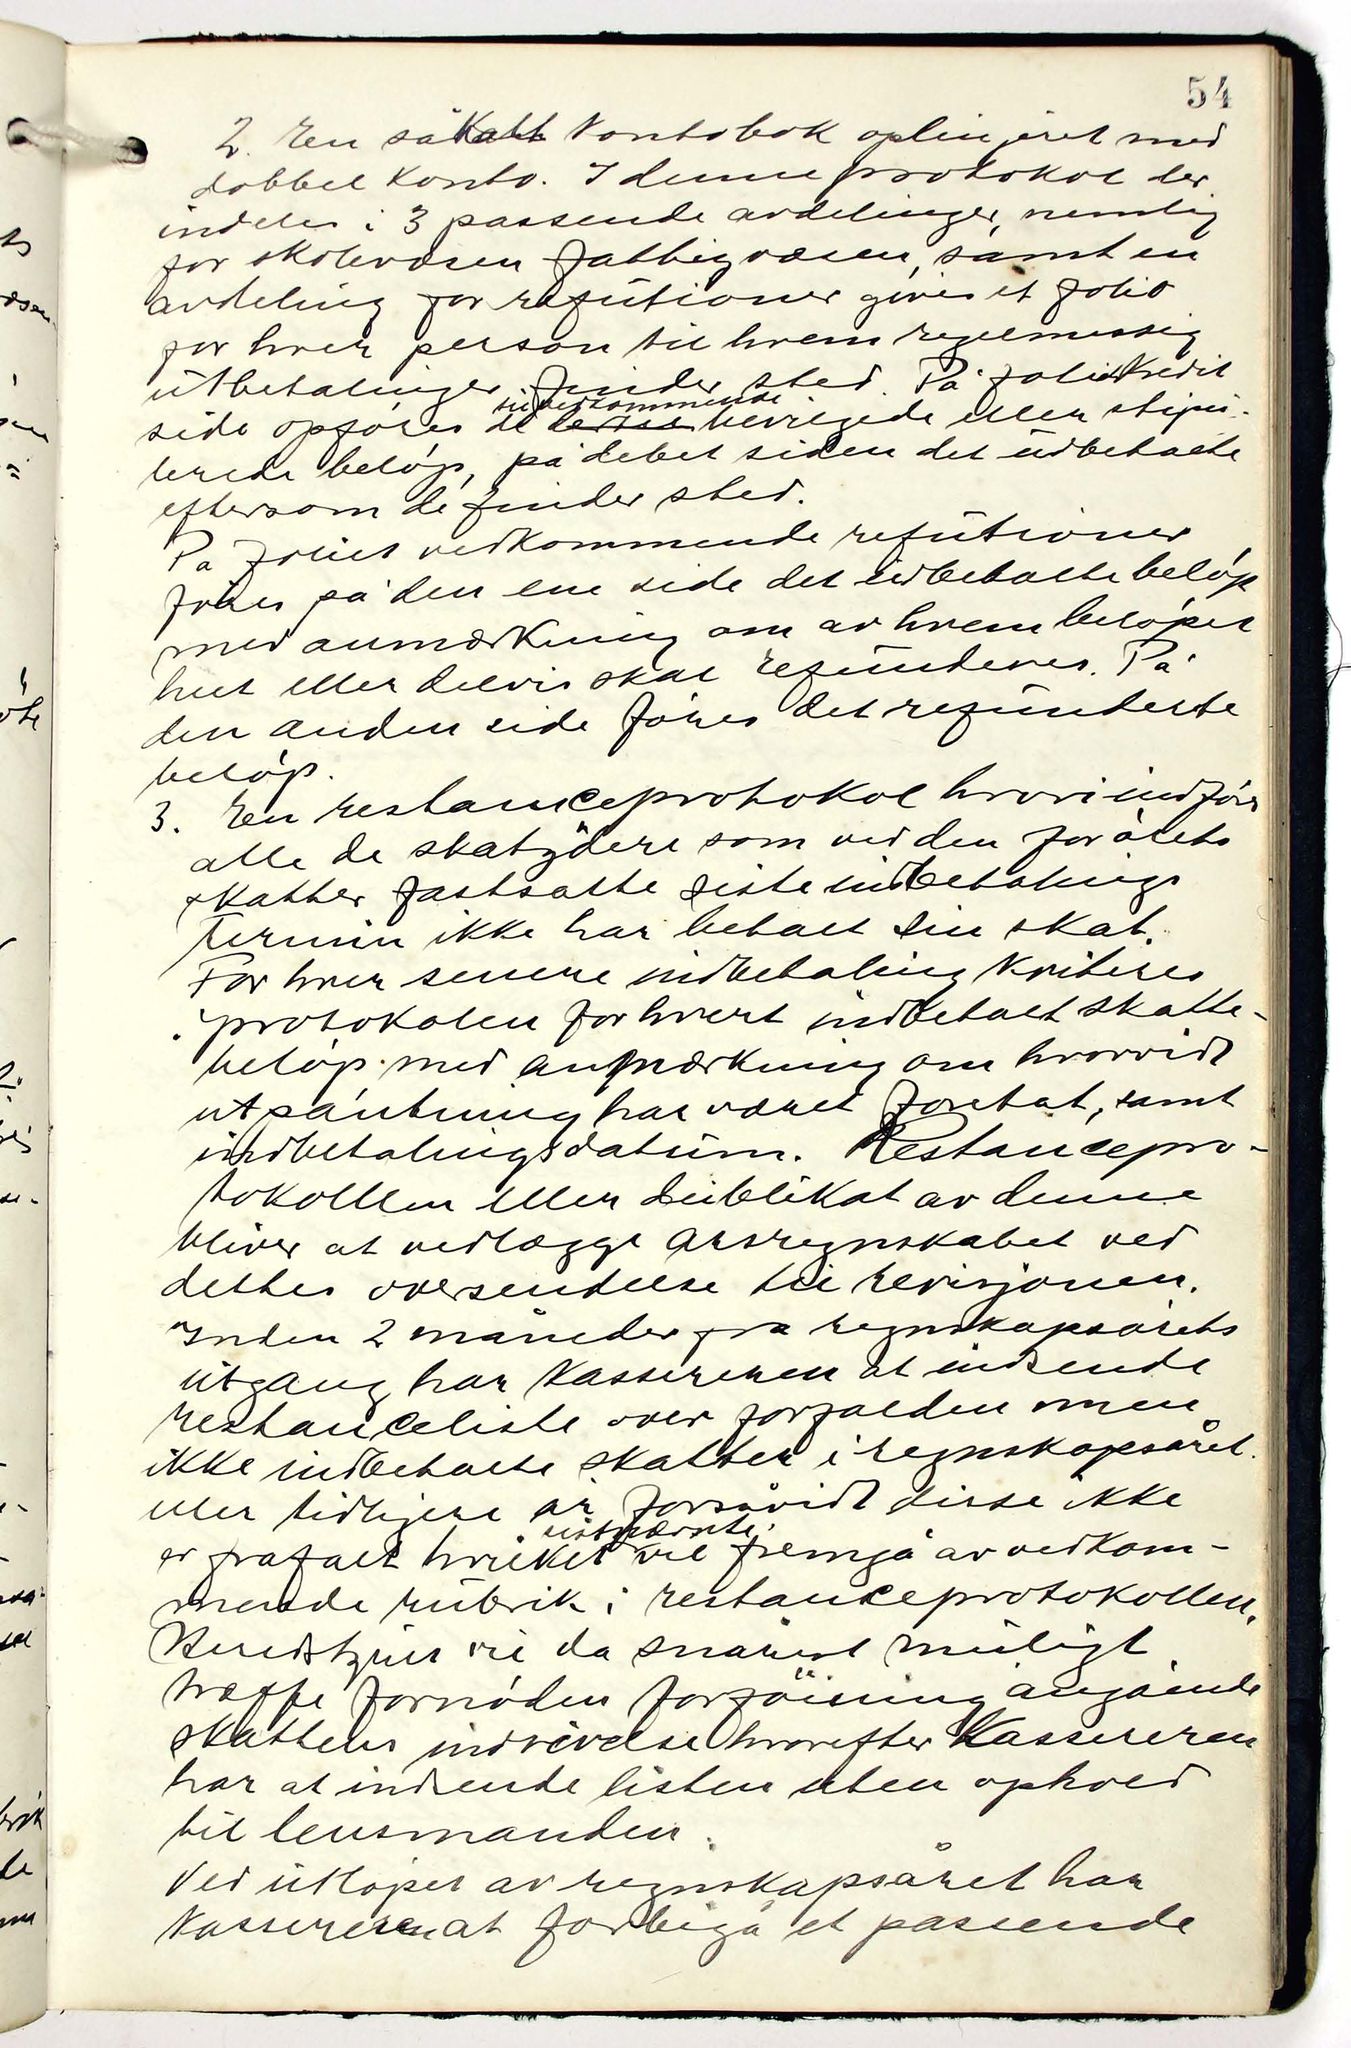 54
2. En såkalt Kontobok oplinjeret med
dobbel Konto. I denne protokol der
indeles i 3 passende avdelinger, nemlig
for skolevæsen fattigvæsen, samt en
avdeling for refutioner gives et folio
for hver person til hvem regelmessig
utbetalinger finder sted. På foliets Kredit
side opføres de vedkommende bevilgede eller stipu-
lerede beløp, på debet siden det udbetalte
eftersom de finder sted.
På foliet vedkommende refutioner
føres på den ene side det udbetalte beløp
med anmærkning om av hvem beløpet
helt eller delvis skal refunderes. På
den anden side føres det refunderte
beløp.
3. En restanceprotokol hvori indføres
alle de skatydere som ved den for årets
skatter fastsatte siste indbetalings
termin ikke har betalt sin skat.
For hver senere indbetaling kviteres
i protokolen for hvert indbetalt skatte-
beløp med anmærkning om hvorvidt
utpantning har været foretat, samt
indbetalingsdatum. Restancepro-
tokollen eller dublikat av denne
bliver at vedlægge årsregnskabet ved
dettes oversendelse til revisjonen.
Inden 2 måneder fra regnskapsårets
utgang har Kassereren at indsende
restanceliste over forfalden men
ikke indbetalte skatter i regnskapsåret
eller tidligere år forsåvidt disse ikke
er frafalt hvilket vil fremgå av vedkom-
mende rubrik i restanceprotokollen.
Herredstyret vil da snarest muligt
træffe fornøden forføining angående
skattens inddrivelse hvorefter Kassereren
har at indsende listen uten ophold
til lensmanden.
Ved utløpet av regnskapsåret har
Kassereren at forbigå et passende